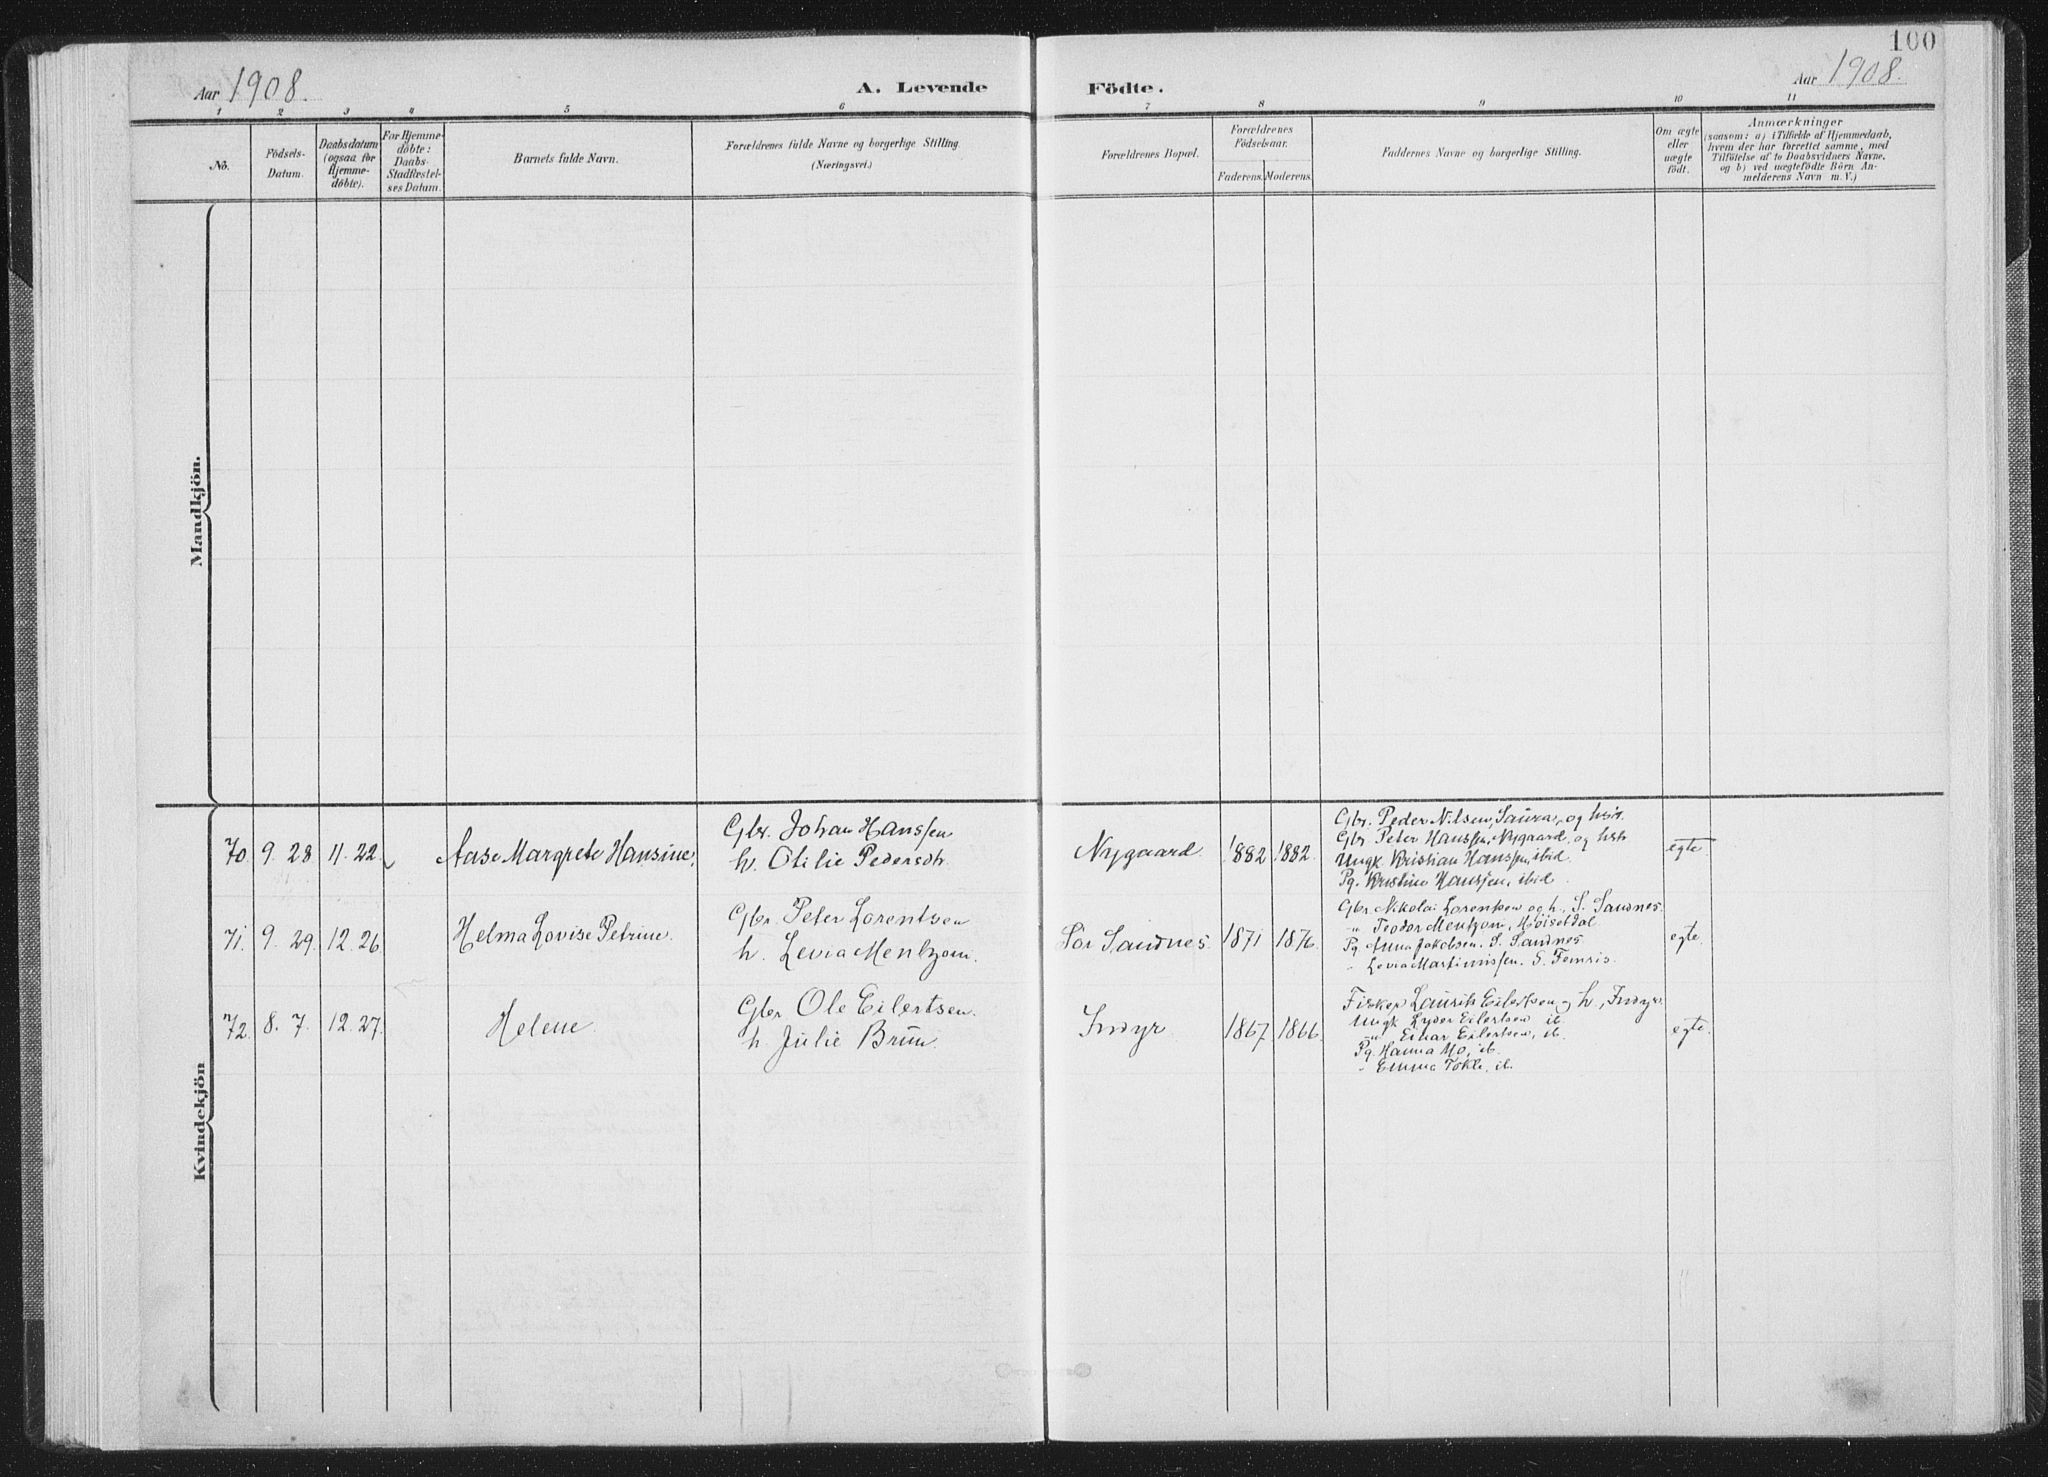 100
Aar 1908.
A. Levende
Födte.
Aar 1908.
1 2 3 4 5 6 7 8 9 10 11
No.
Födsels-
Datum.
Daabsdatum
(ogsaa for
Hjemme-
döbte).
For Hjemme-
döbte:
Daabs-
Stadfæstel-
ses Datum.
Barnets fulde Navn.
Forældrenes fulde Navne og borgerlige Stilling.
(Næringsvei.)
Forældrenes Bopæl.
Forældrenes
Födselsaar.
Faderens. Moderens.
Faddernes Navne og borgerlige Stilling.
Om ægte
eller
uægte
födt.
Anmærkninger
(saasom: a) i Tilfælde af Hjemmedaab,
hvem der har forrettet samme, med
Tilföielse af to Daabsvidners Navne,
og b) ved uægtefödte Börn An-
melderens Navn m. V.)
Mandkjön.
Kvindekjön
70. 9. 28 11. 22. Aase Margrete Hansine.
Gbr. Johan Hanssen
h. Otilie Pedersdtr.
Nygaard 1882 1882.
Gbr. Peder Nilsen, Saura, og hstr.
Gbr Peter Hanssen, Nygaard, og hstr
Ungk Kristian Hanssen, ibid
Pg. Kristine Hanssen, ibid
egte.
71. 9. 29. 12. 26. Helma Lovise Petrine.
Gbr. Peter Lorentsen
h. Levia Mentzoni.
Sör Sandnes. 1871 1876.
Gbr. Nikolai Lorentsen og h., S. Sandnes.
" Teodor Mentzoni,
Pg. Anna Jakobsen. S. Sandnes
" Levia Martinussen. S. Femris.
egte.
72. 8. 7. 12. 27. Helene
Gbr Ole Eilertsen.
h. Julie Bruun.
Indyr 1867. 1866.
Fisker Laurits Eilertsen og h., Indyr.
Ungk Lyder Eilertsen ib
" Einar Eilertsen, ib.
Pg. Hanna Mo, ib.
" Emma Tokle, ib.
egte.